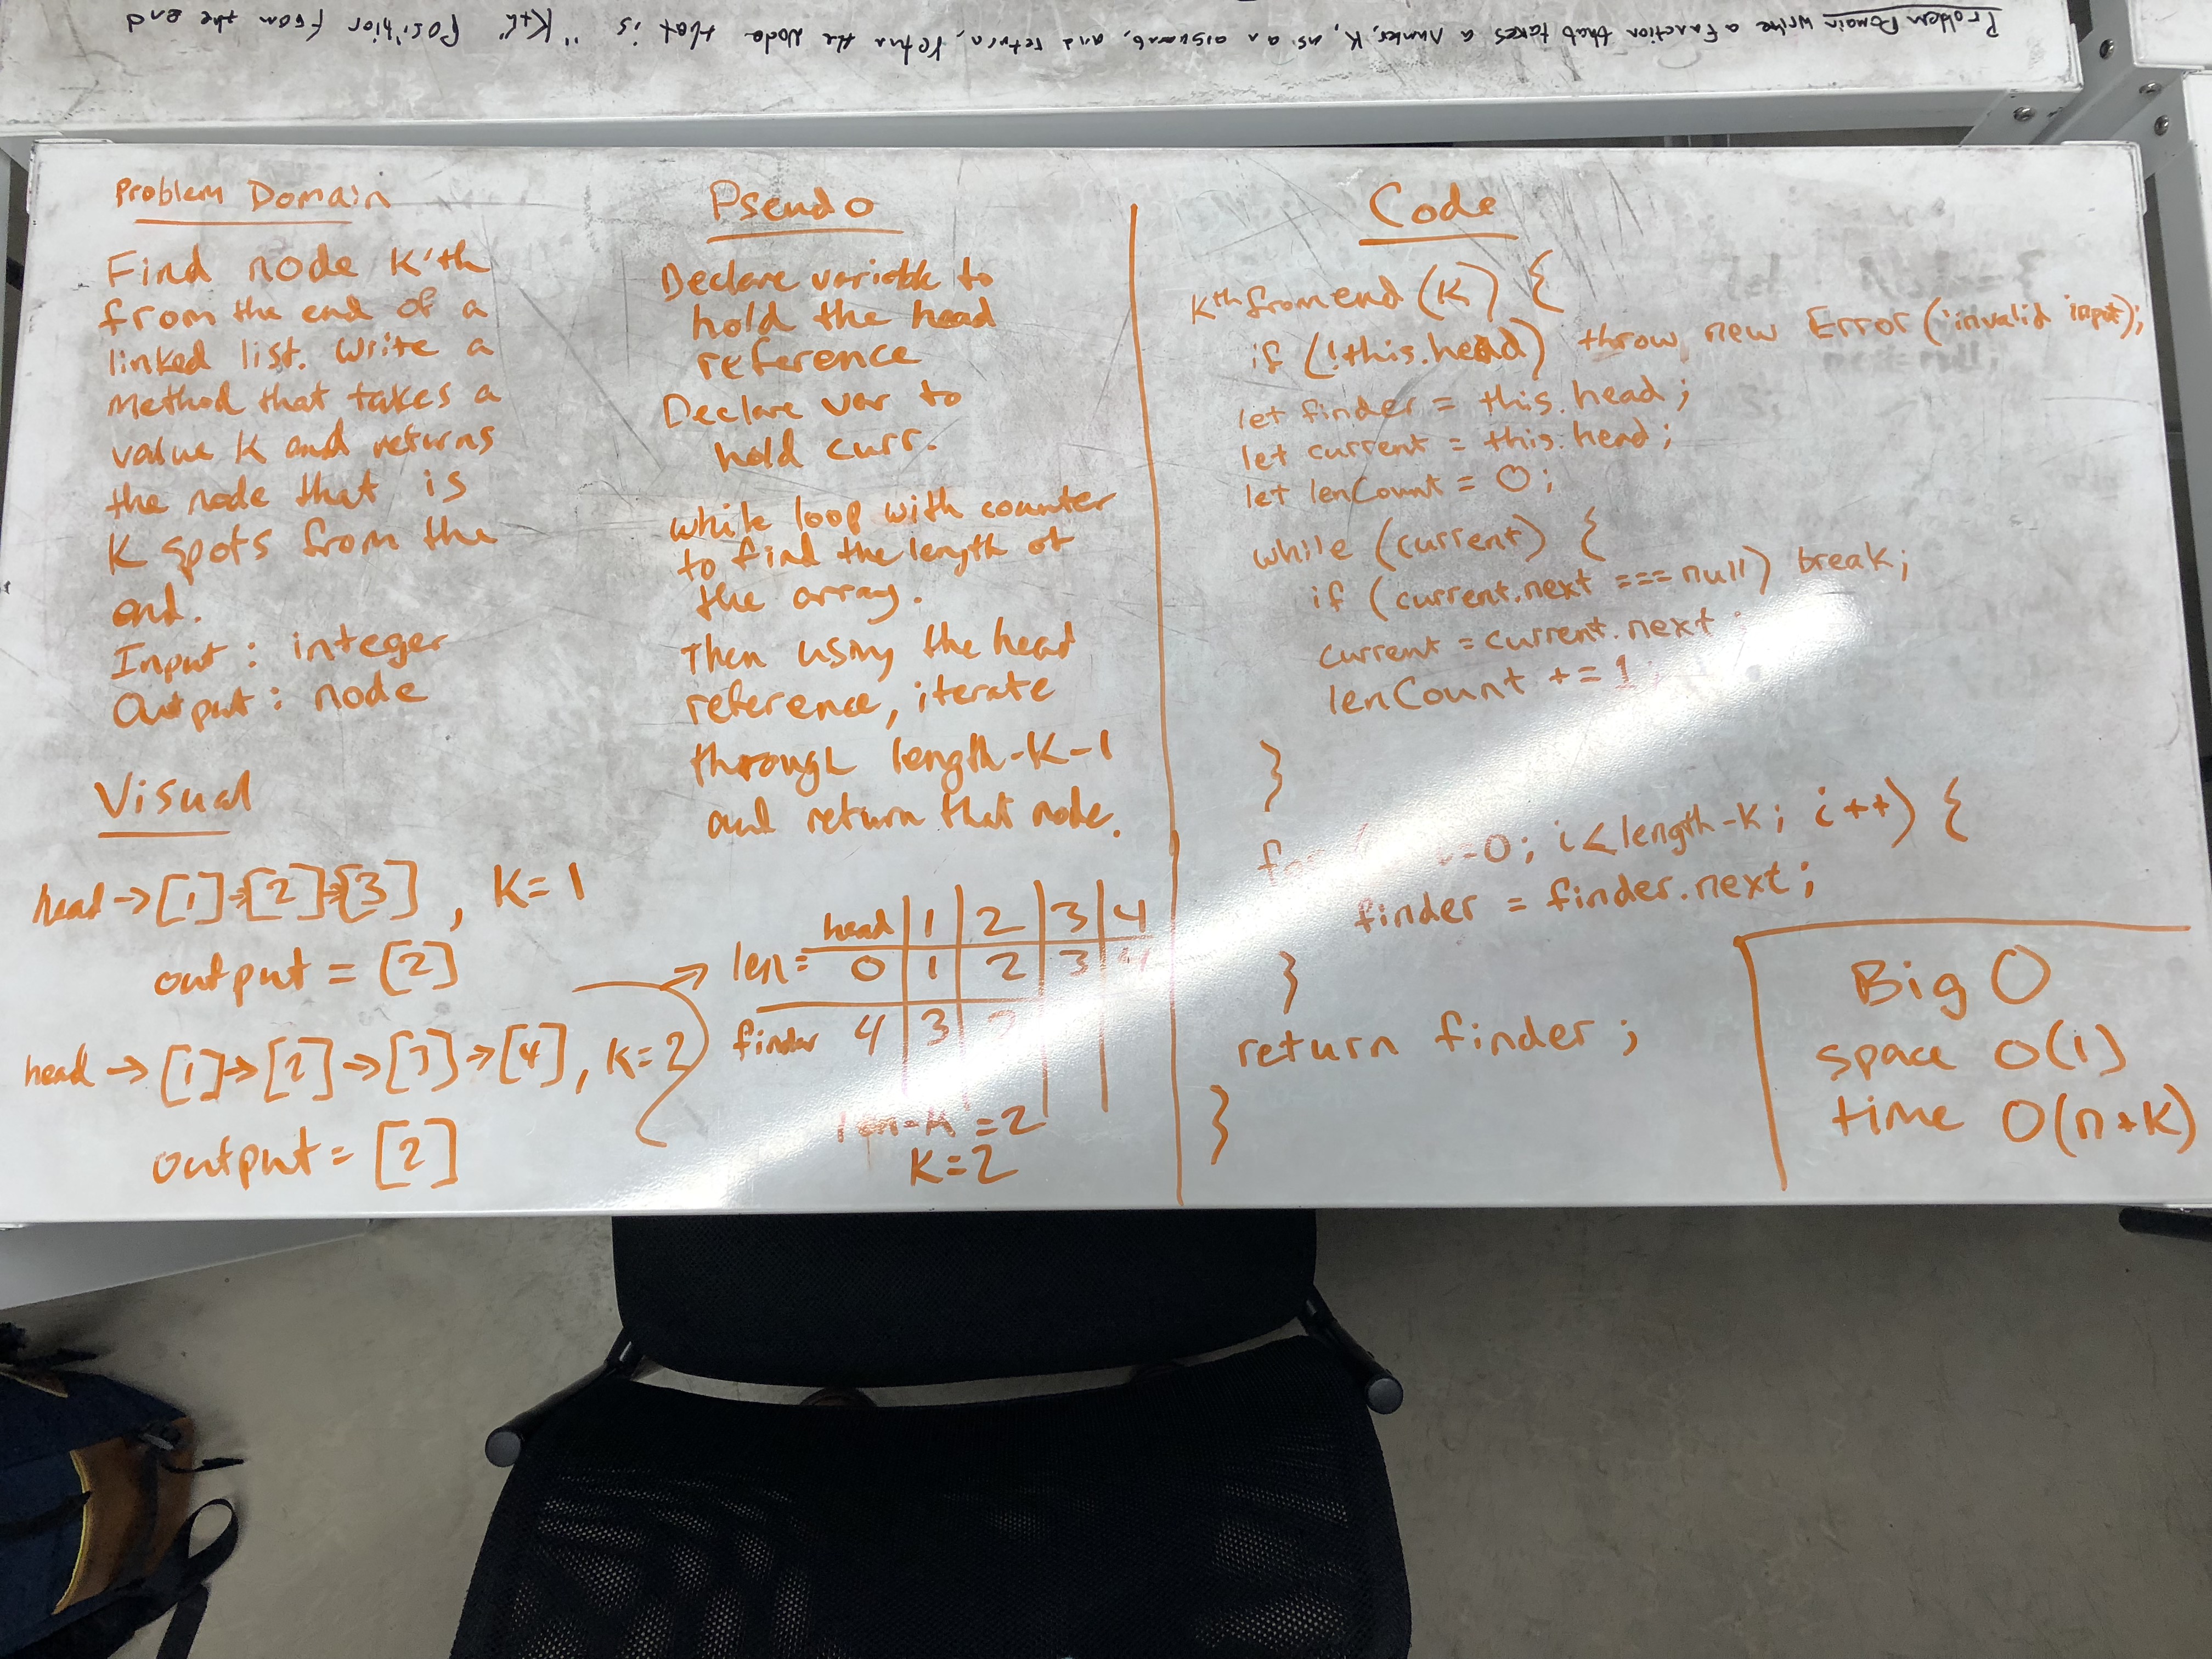 Problem Domain write a function that takes a number, K, as an argument, and return, return the Node that is "Kth" Position from the end
Problem Domain
Find node K'th
from the end of a
linked list. Write a
Method that takes a
value K and returns
the node that is
K spots from the
end.
Input: integer
Output: node
Visual
head → [1] → [2] → [3], K=1
output = [2]
head → [1] → [2] → [3] → [4], K=2
output = [2]
Pseudo
Declare variable to
hold the head
reference
Declare var to
hold curr.
while loop with counter
to find the length of
the array.
Then using the head
reference, iterate
through length-K-1
and return that node.
head | 1 | 2 | 3 | 4
len = 0 | 1 | 2 | 3 | 4
finder 4 | 3 | 2
len-K = 2
K=2
Code
Kthfromend(K) {
if (!this.head) throw new Error('invalid input');
let finder = this.head;
let current = this.head;
let lenCount = 0;
while (current) {
if (current.next === null) break;
current = current.next;
lenCount += 1;
}
=0; i<length-K; i++) {
finder = finder.next;
}
return finder;
}
Big O
space O(1)
time O(n+K)